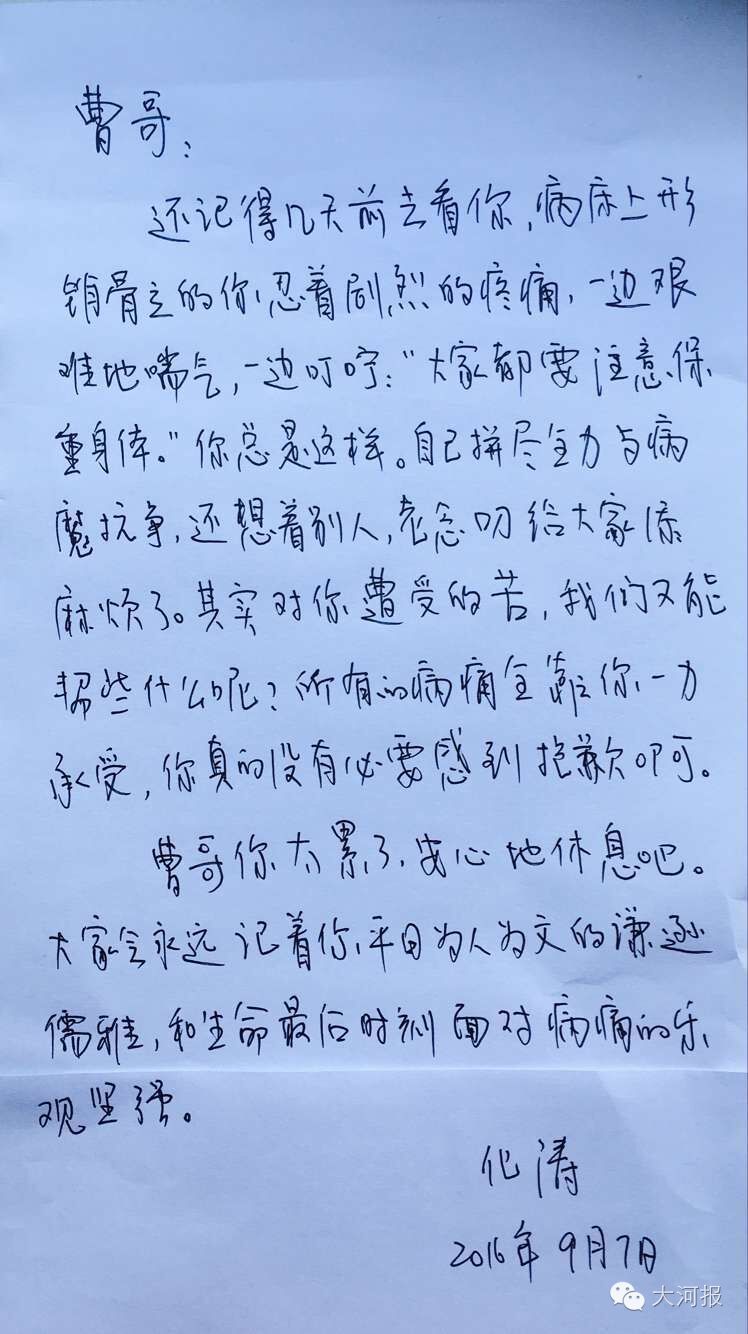 曹哥：
还记得几天前去看你，病床上形
销骨立的你，忍着剧烈的疼痛，一边艰
难地喘气，一边叮咛：“大家都要注意保
重身体。”你总是这样。自己拼尽全力与病
魔抗争，还想着别人，老念叨给大家添
麻烦了。其实对你遭受的苦，我们又能
帮些什么呢？所有的病痛全靠你一力
承受，你真的没有必要感到抱歉啊。
曹哥你太累了，安心地休息吧。
大家会永远记着你，平日为人为文的谦逊
儒雅，和生命最后时刻面对病痛的乐
观坚强。
化涛
2016年9月7日
大河报